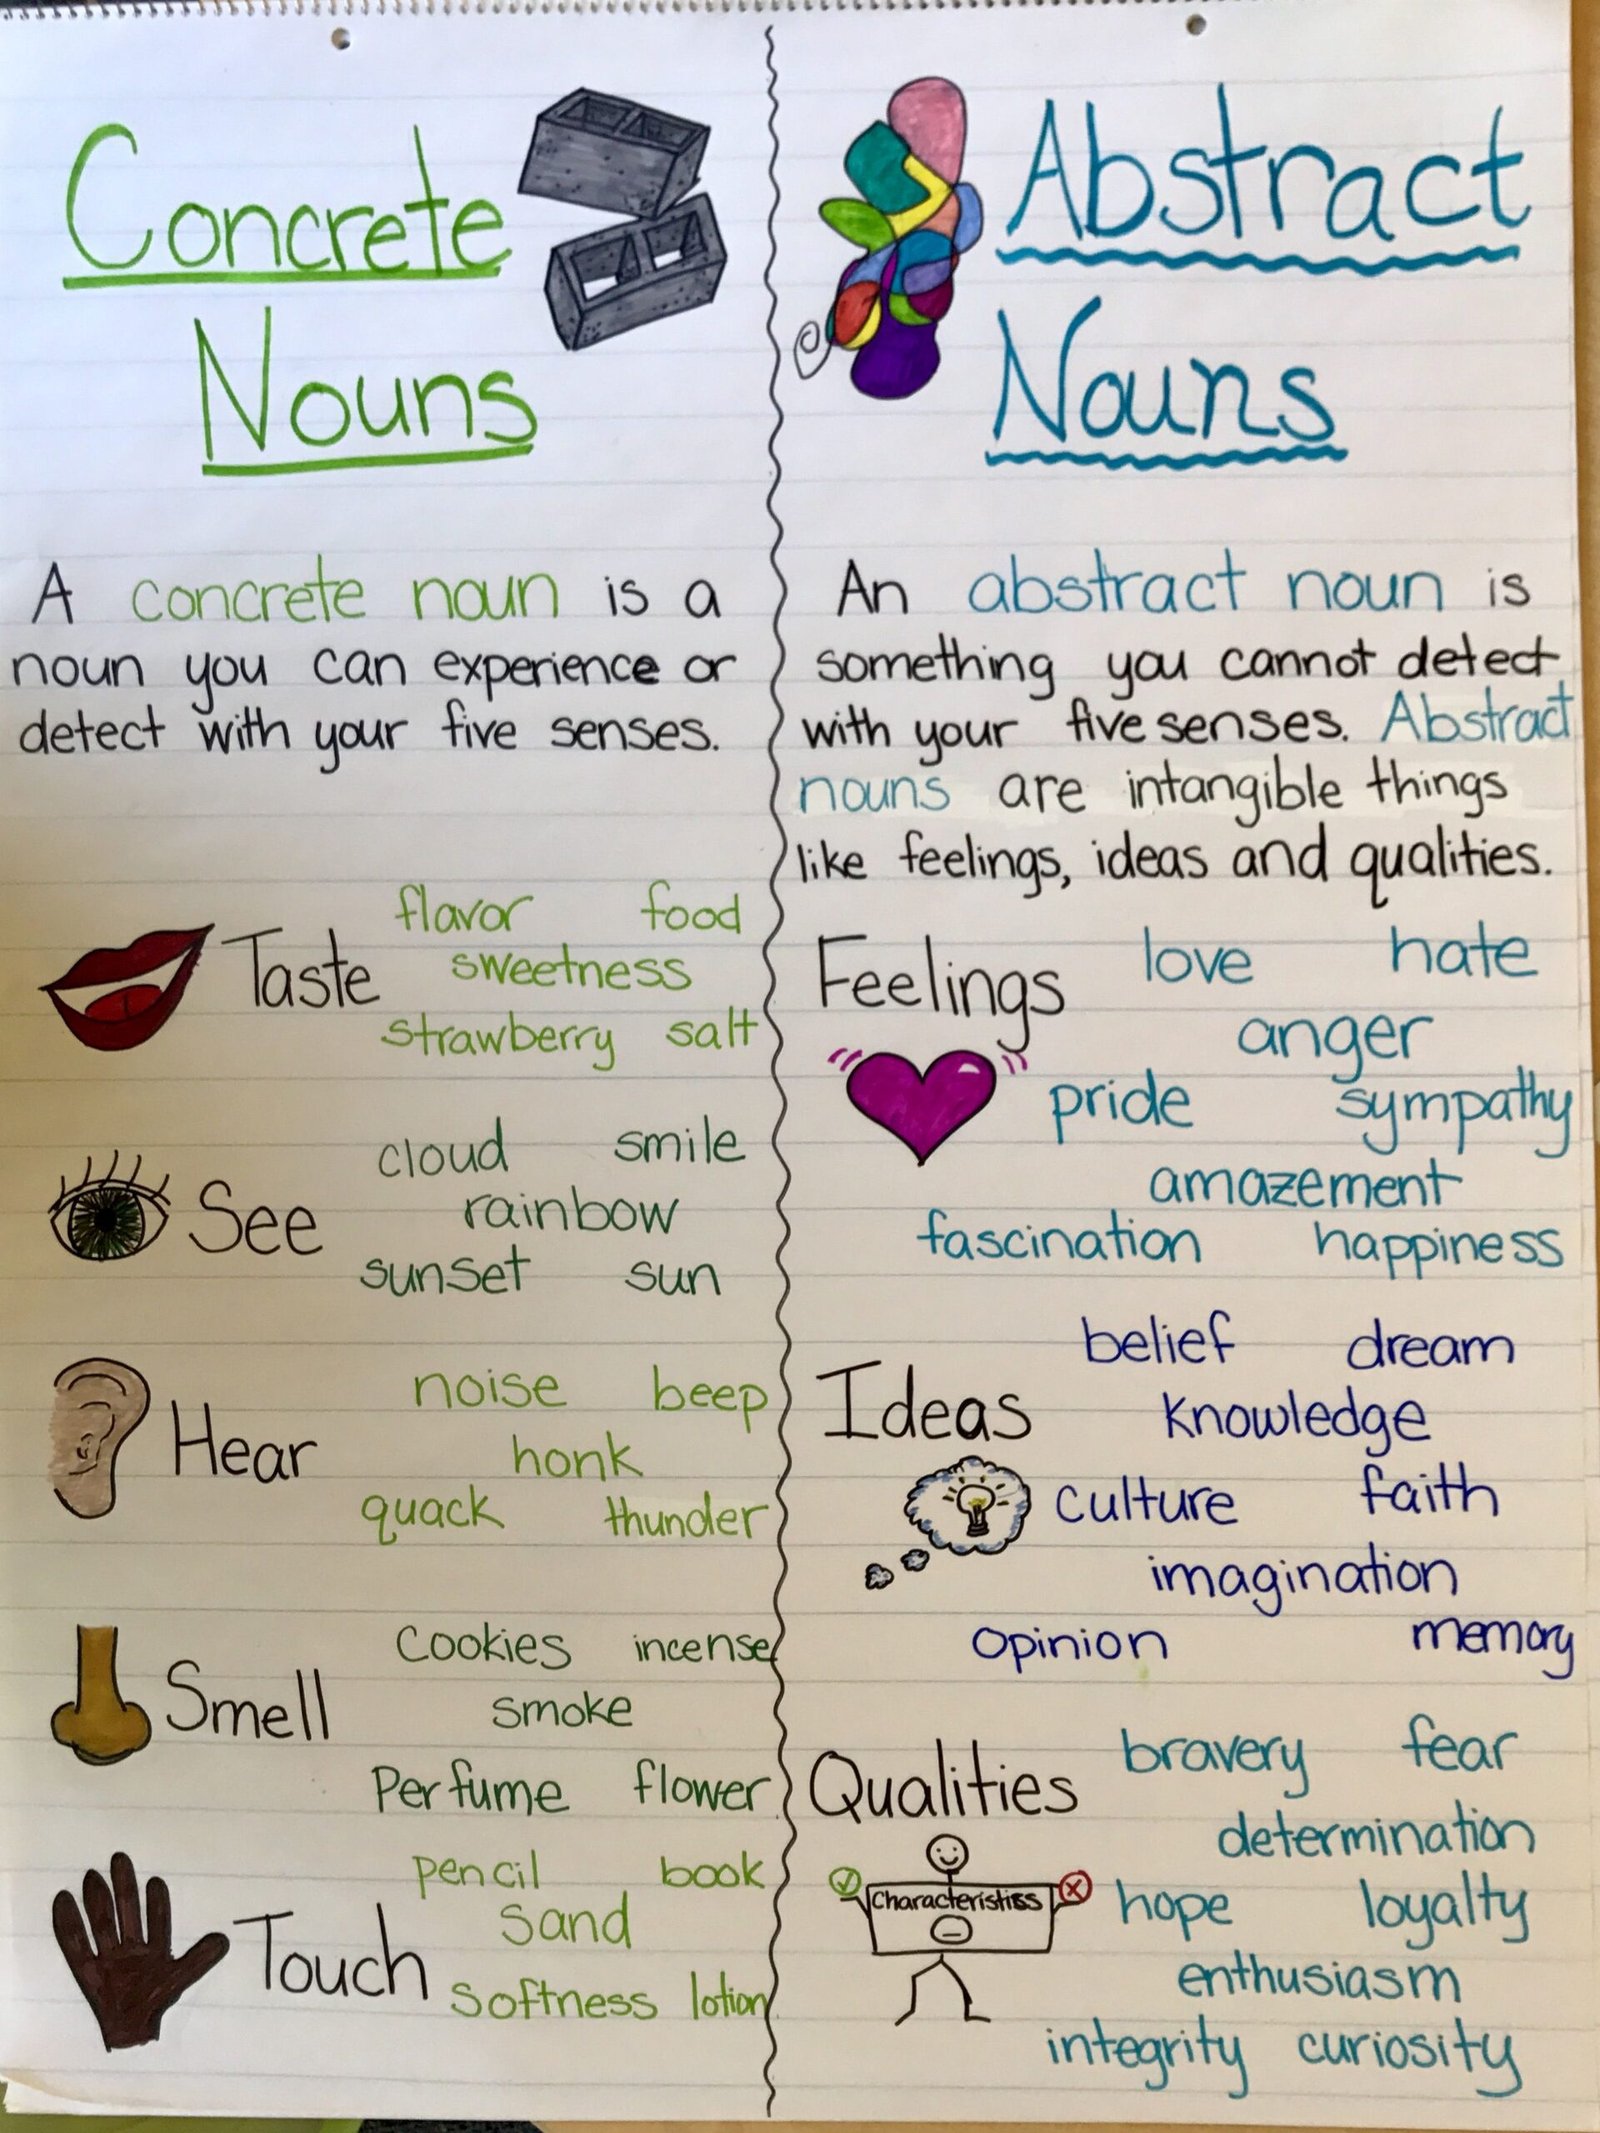 Concrete
Nouns
A concrete noun is a
noun you can experience or
detect with your five senses.
Taste
flavor food
sweetness
strawberry salt
See
cloud smile
rainbow
sunset sun
Hear
noise beep
honk
quack thunder
Smell
Cookies incense
smoke
Perfume flower
Touch
pencil book
sand
softness lotion
Abstract
Nouns
An abstract noun is
something you cannot detect
with your five senses. Abstract
nouns are intangible things
like feelings, ideas and qualities.
Feelings
love hate
anger
pride sympathy
amazement
fascination happiness
Ideas
belief dream
knowledge
culture faith
imagination
opinion memory
Qualities
bravery fear
determination
Characteristiss
hope loyalty
enthusiasm
integrity curiosity